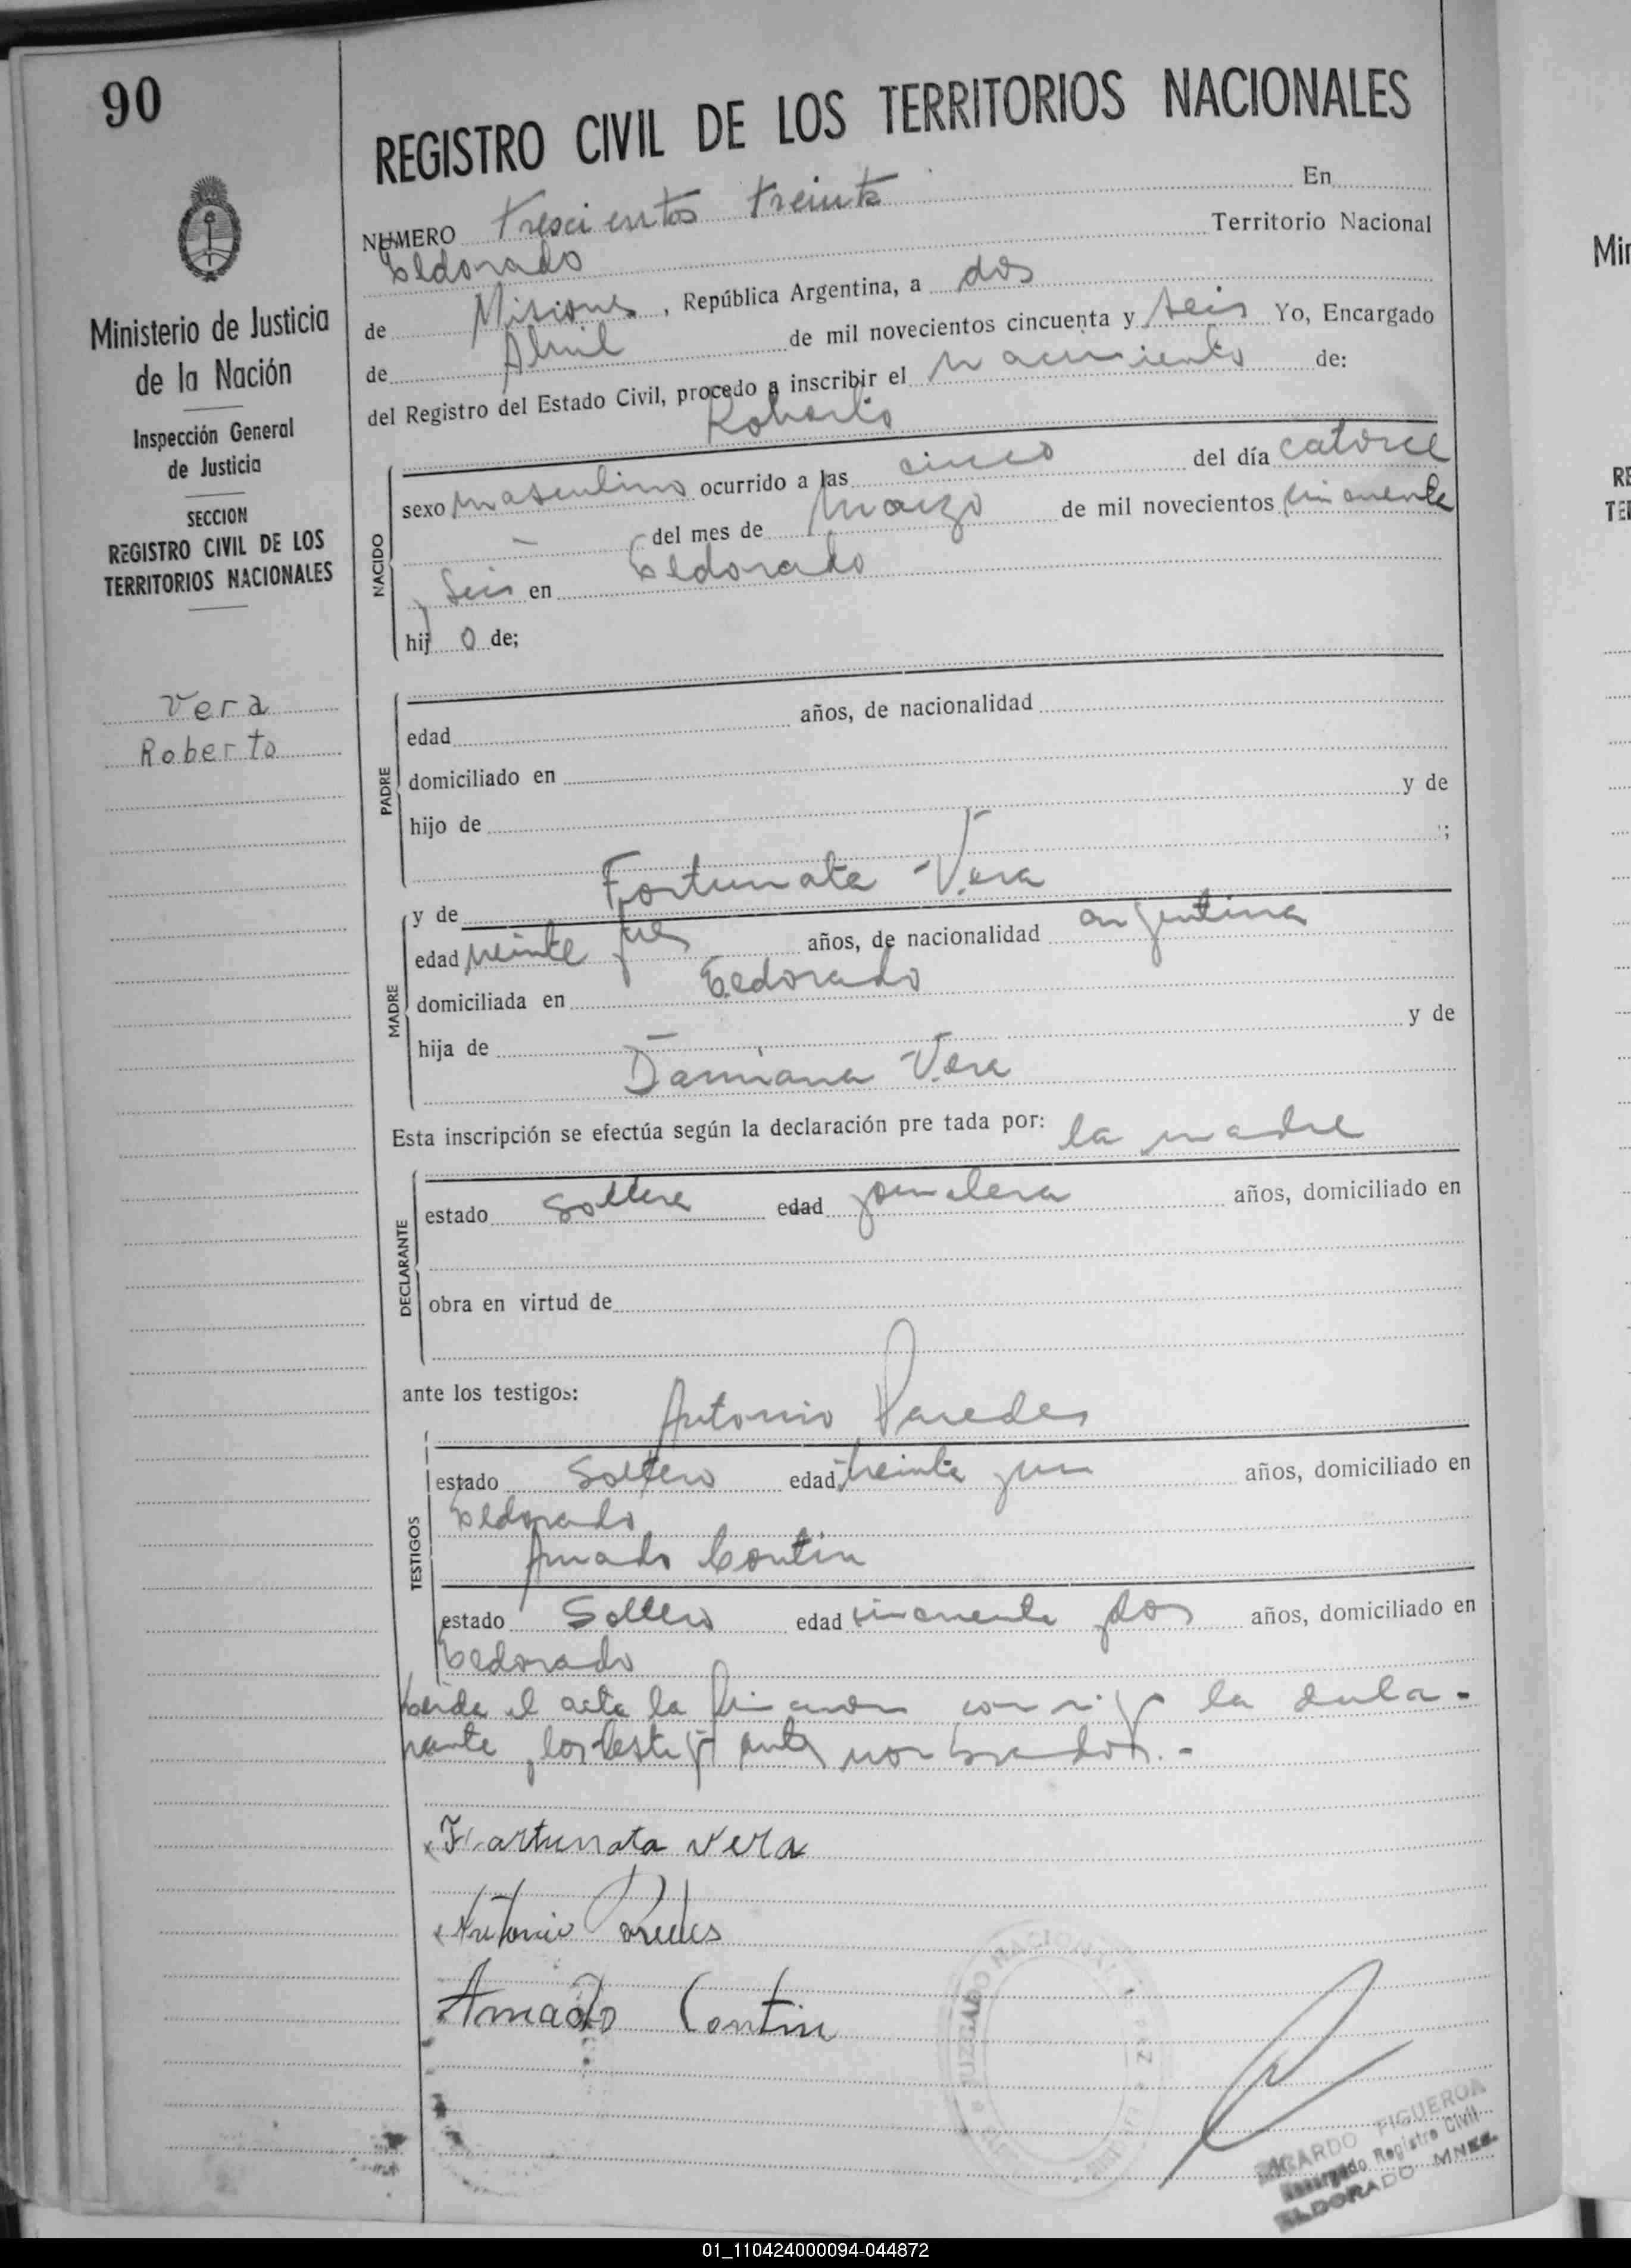 90
REGISTRO CIVIL DE LOS TERRITORIOS NACIONALES
NUMERO trescientos treinta En
Eldorado Territorio Nacional
de Misiones, República Argentina, a dos
de Abril de mil novecientos cincuenta y seis Yo, Encargado
del Registro del Estado Civil, procedo a inscribir el nacimiento de:
Roberto
NACIDO
sexo masculino ocurrido a las cinco del día catorce
- del mes de Marzo de mil novecientos cincuenta
y seis en Eldorado
hij o de;
PADRE
edad años, de nacionalidad
domiciliado en
hijo de y de
;
MADRE
y de Fortunata Vera
edad veinte y años, de nacionalidad argentina
domiciliada en Eldorado
hija de y de
Damiana Vera
Esta inscripción se efectúa según la declaración pre tada por: la madre
DECLARANTE
estado soltera edad jornalera años, domiciliado en
obra en virtud de
ante los testigos:
TESTIGOS
Antonio Paredes
estado Soltero edad treinta y un años, domiciliado en
Eldorado
Amado Contin
estado Soltero edad cincuenta y dos años, domiciliado en
Eldorado
Leida el acta la firman conmigo la decla-
rante y los testigos antes nombrados.-
Fortunata Vera
Antonio Paredes
Amado Contin
JUZGADO NACIONAL DE PAZ
RICARDO FIGUEROA
Encargado Registro Civil
ELDORADO MNES.
Ministerio de Justicia
de la Nación
Inspección General
de Justicia
SECCION
REGISTRO CIVIL DE LOS
TERRITORIOS NACIONALES
Vera
Roberto
Min
RE
TER
01_110424000094-044872